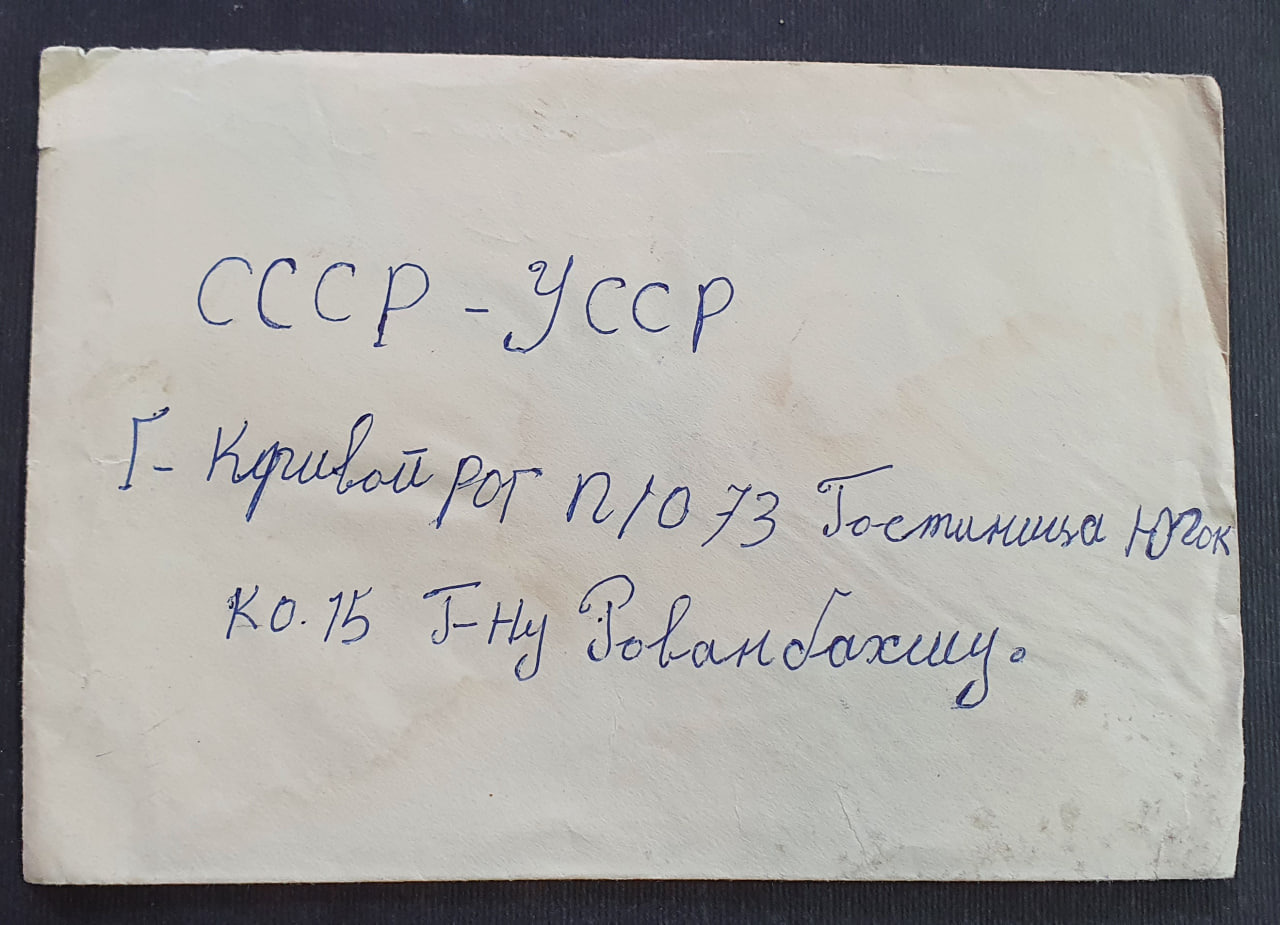 СССР - УССР
Г- Кривой рог п/о 73 Гостиница Югок
ко. 15 Г-ну Рованбахшу.